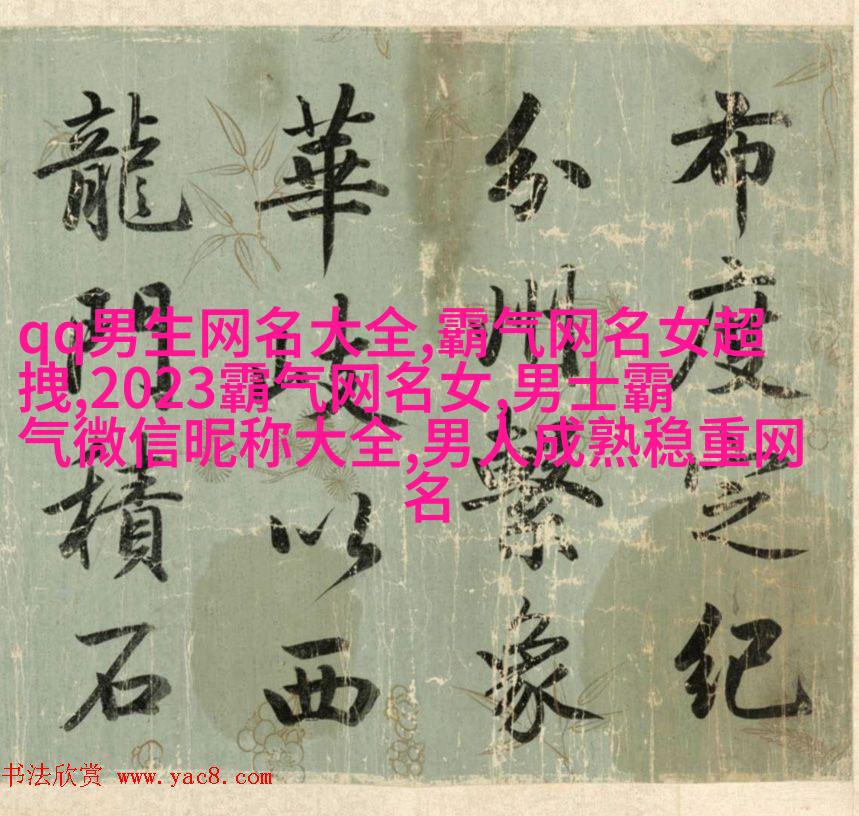 布度定紀
分州繫象
華岐以西
龍門積石
qq男生网名大全,霸气网名女超
拽,2023霸气网名女,男士霸
气微信昵称大全,男人成熟稳重网
名
书法欣赏 www.yac8.com